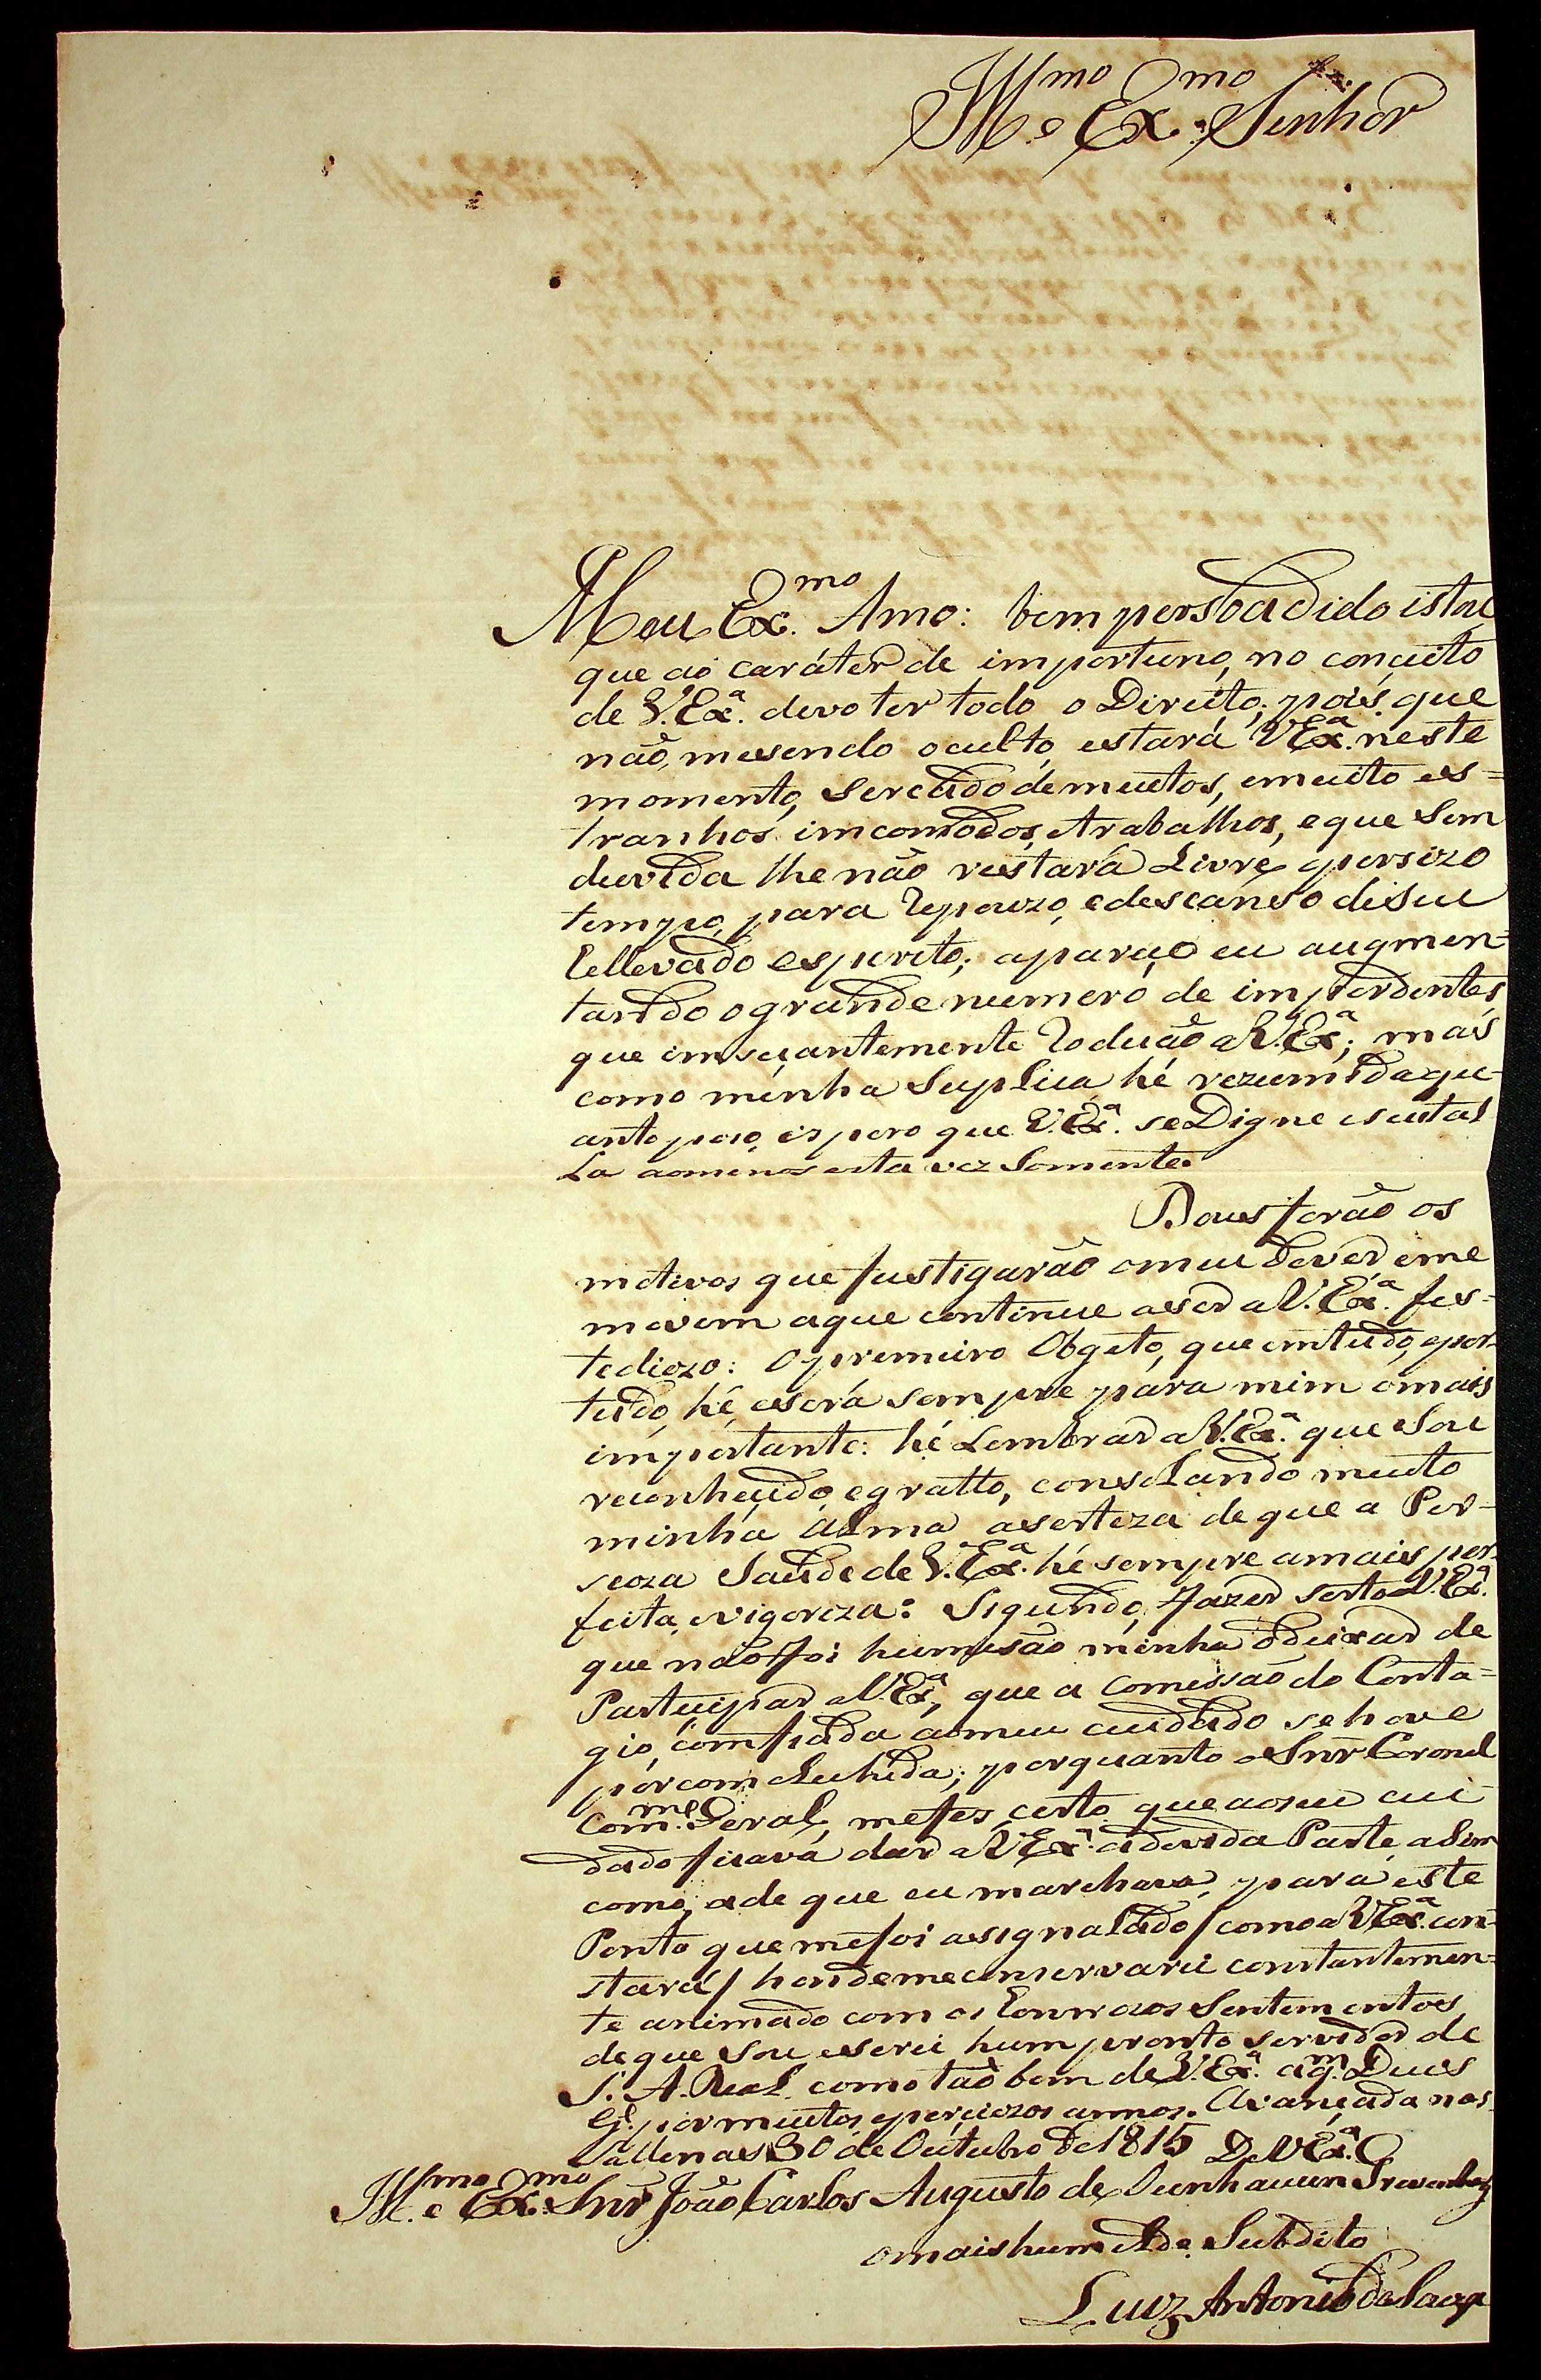 Ill.mo e Ex.mo Senhor
Meu Ex.mo Amo: bem persoadido estou
que ao caráter de importuno, no conceito
de V. Ex.a devo ter todo o Direito; pois que
não mesendo oculto, estará V Ex.a neste
momento, sercado demuitos, emuito es=
tranhos imcomodos, etrabalhos, eque Sem
duvida lhe não restará Livre, epersizo
tempo, para Repouzo, edescanso diseu
Ellevado esperito; apareço eu augmen=
tando ogrande numero de impordentes,
que imseçantemente Rodeião a V. Ex.a; mas
como minha Suplica hé rezumida qu-
anto poso, espero que V. Ex.a se Digne escutal
La aomenos esta vez Somente.
Dous forão os
motivos que fustigarão omeu Dever eme
movem aque continue aser a V. Ex.a fes-
tediozo: Opremeiro Obgeto, que emtudo, epor-
tudo, hé, eserá sempre para mim omais
importante: hé Lembrar a V. Ex.a que Sou
reconheçido, egratto, consolando muito
minha alma aserteza de que a Per-
seoza Saude de V. Ex.a hé sempre amais per-
feita, evigoroza: Sigundo, fazer serto a V. Ex.a
que não foi humisão minha odeixar de
Partecipar a V. Ex.a, que a Comissão do Conta=
gio, comfiada aomeu cuidado se hove
por comcluhida; porquanto o Snr Coronel
Com.me Geral, mefes certo que aoseu cui
dado ficava dar a V Ex.a adevida Parte, aSim
como, ade que eu marchava, para este
Ponto que mefoi asignalado / como a V Ex.a con-
stará / hondemeconservarei constantemen=
te animado com os Honrrozos Sentementos
deque Sou eserei hum pronto servidor de
S. A. Real como tão bem de V. Ex.a aq.m Deus
G.e por muitos eperciozos annos. Avançada nas
Sallinas 30 de Outubro de 1815 De V Ex.a
Ill.mo e Ex.mo Snr João Carlos Augusto de Oeunhauzen Grevenbog
omais humilde Subdito
Luiz Antonio de Souza